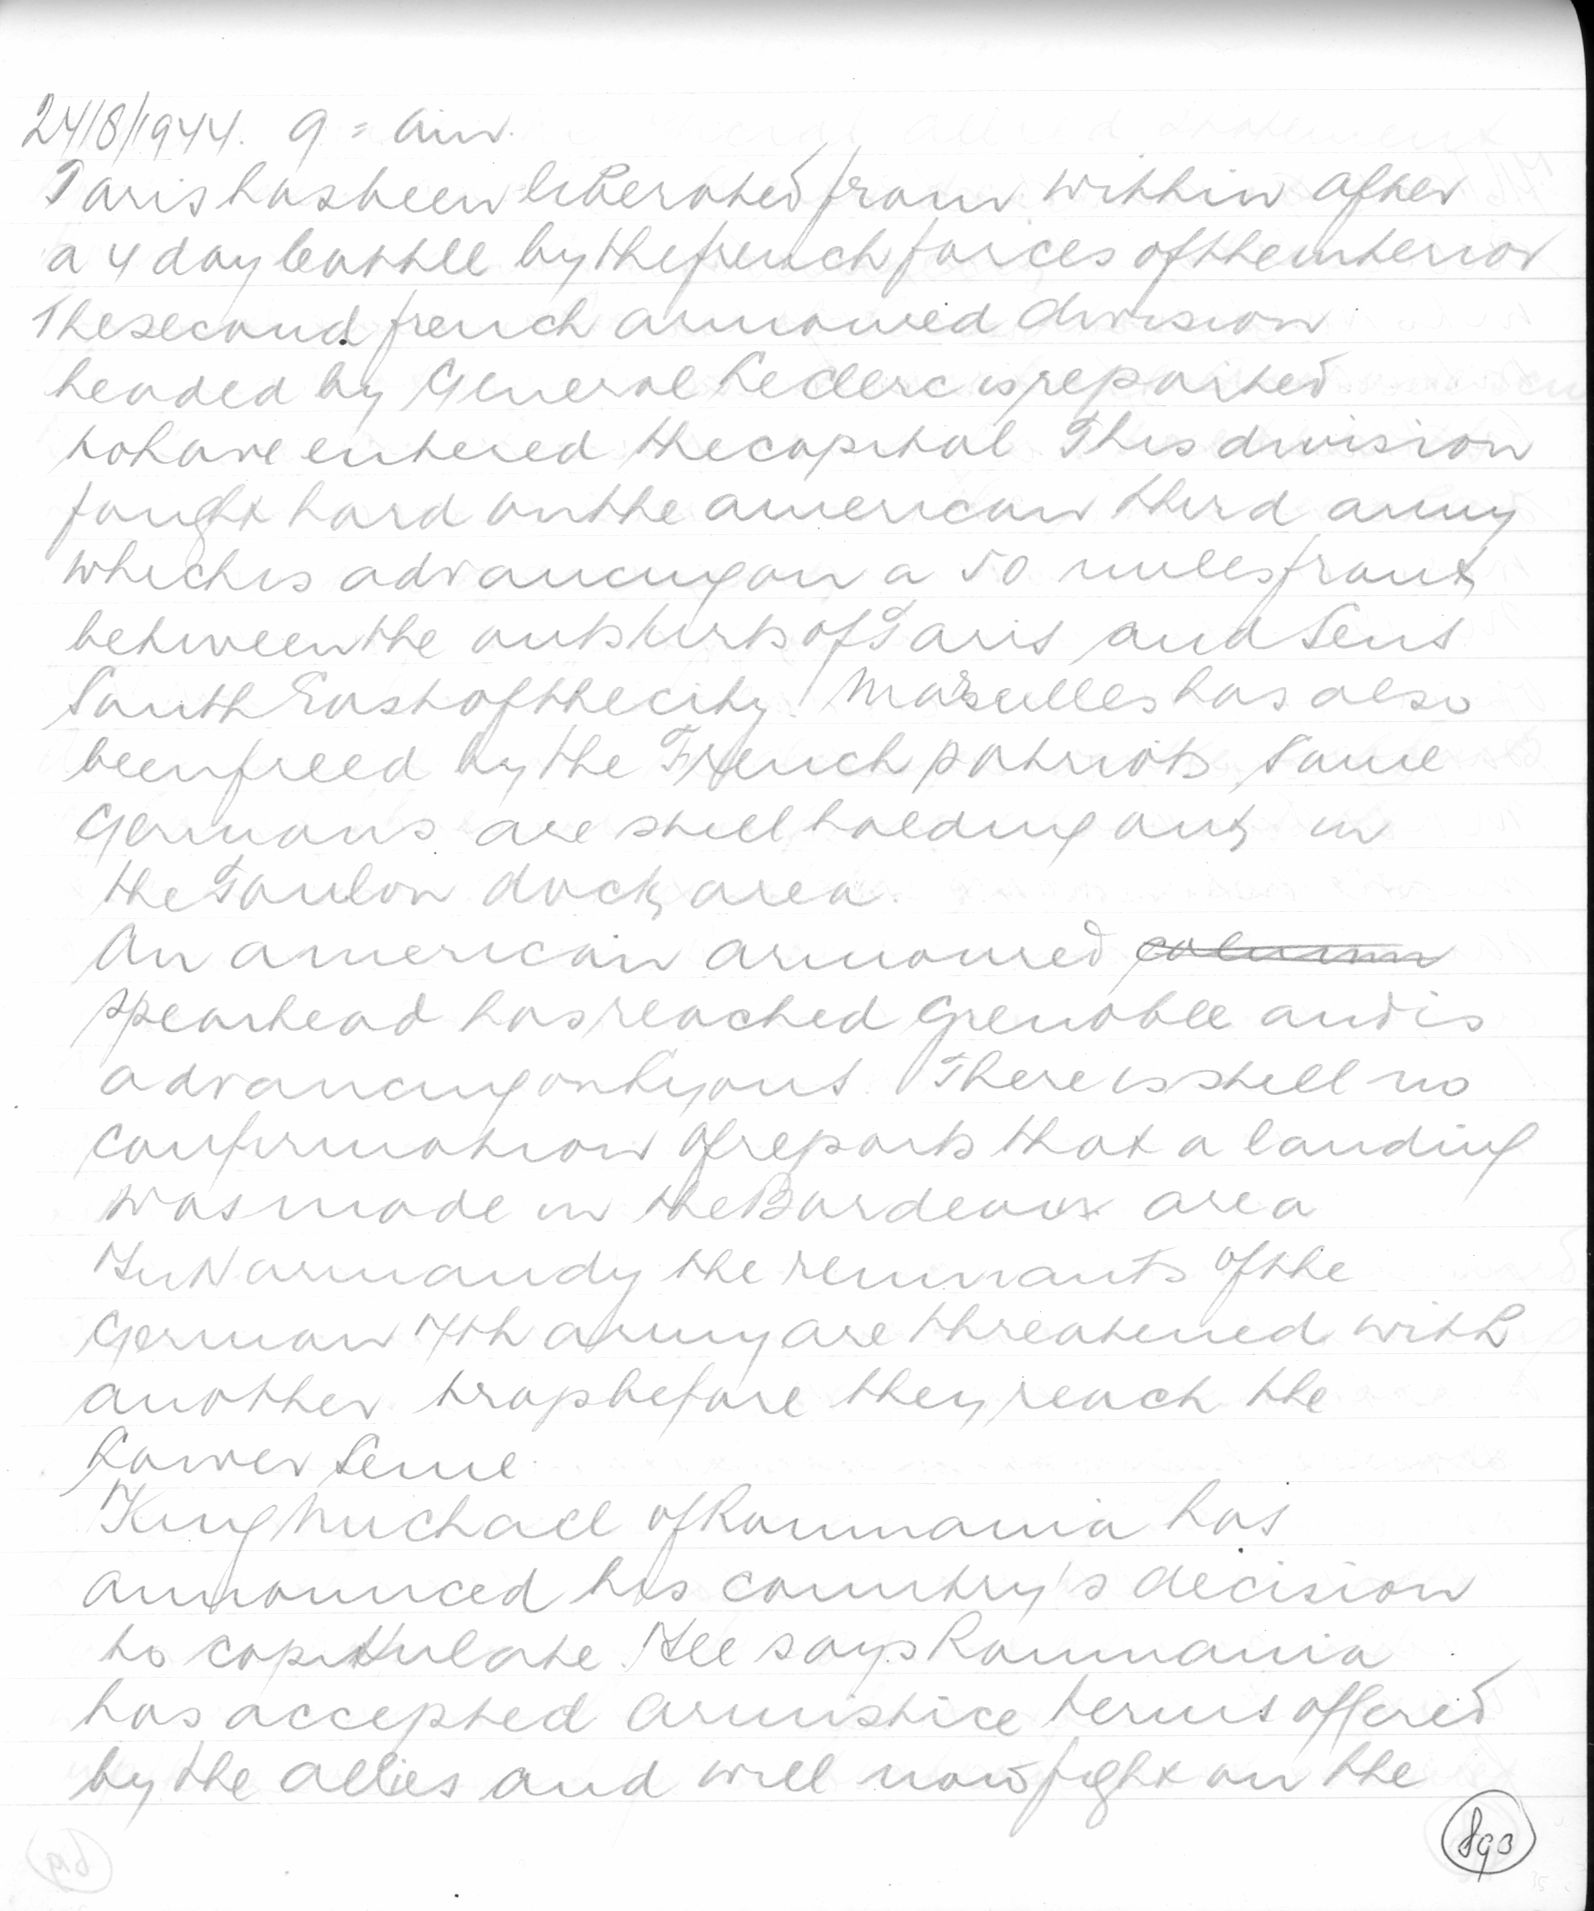 24/8/1944. 9 = am.
Paris has been liberated from within after
a 4 day battle by the french forces of the interior
The second french armoured division
headed by General Leclerc is reported
to have entered the capital This division
fought hard on the american third army
which is advancing on a 50 miles front
between the outskirts of Paris and Sens
South East of the city. Marseilles has also
been freed by the French patriots Some
Germans are still holding out in
the Toulon dock area.
An american armoured column
spearhead has reached Grenoble and is
advancing on Lyons. There is still no
confirmation of reports that a landing
was made in the Bordeaux area
In Normandy the remnants of the
German 7th army are threatened with
another trap before they reach the
Lower Seine.
King Michael of Roumania has
announced his country's decision
to capitulate. He says Roumania
has accepted armistice terms offered
by the allies and will now fight on the